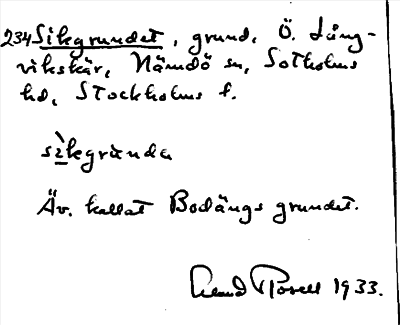 234 Sikgrundet, grund, Ö. Lång-
vikskär, Nämdö sn, Sotholms
hd, Stockholms l.
sìkgrùnda
Äv. kallat Bodängs grundet.
1933.